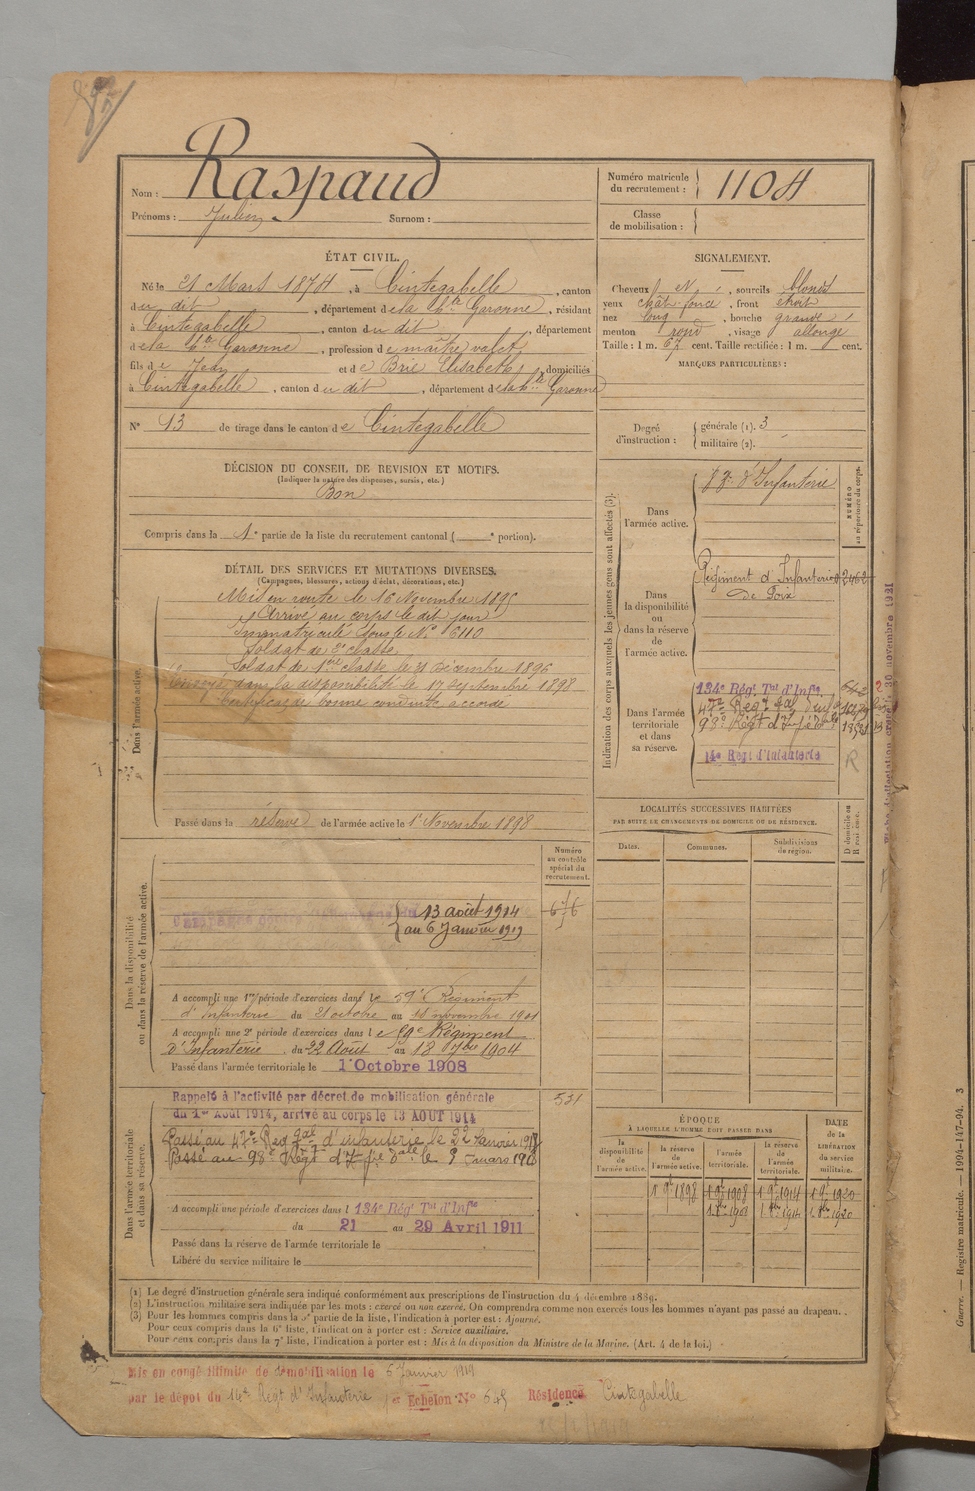 Nom : Raspaud
Prénoms : Julien Surnom :
Numéro matricule du recrutement : 1104
Classe de mobilisation :
ÉTAT CIVIL.
Né le 21 Mars 1874, à Cintegabelle, canton
du dit, département de la Hte Garonne, résidant
à Cintegabelle, canton du dit, département
de la Hte Garonne, profession de maître valet
fils de Jean et de Brie Elisabeth, domiciliés
à Cintegabelle, canton du dit, département de la Hte Garonne
N° 13 de tirage dans le canton de Cintegabelle
SIGNALEMENT.
Cheveux et, sourcils blonds
yeux chât. foncé, front étroit
nez long, bouche grande
menton rond, visage allongé
Taille : 1 m. 67 cent. Taille rectifiée : 1 m. cent.
MARQUES PARTICULIÈRES :
Degré d'instruction : générale (1). 3
militaire (2).
DÉCISION DU CONSEIL DE REVISION ET MOTIFS.
(Indiquer la nature des dispenses, sursis, etc.)
Bon
Compris dans la 1e partie de la liste du recrutement cantonal ( e portion).
DÉTAIL DES SERVICES ET MUTATIONS DIVERSES.
(Campagnes, blessures, actions d'éclat, décorations, etc.)
Dans l'armée active.
Mis en route le 16 Novembre 1895
Arrivé au corps le dit jour
Immatriculé sous le N° 6110
Soldat de 2e classe
Soldat de 1ère classe le 31 Décembre 1896
Envoyé dans la disponibilité le 17 Septembre 1898
Certificat de bonne conduite accordé
Passé dans la réserve de l'armée active le 1er Novembre 1898
Indication des corps auxquels les jeunes gens sont affectés (3).
NUMÉRO au répertoire du corps.
Dans l'armée active.
d'Infanterie
Dans la disponibilité ou dans la réserve de l'armée active.
Régiment d'Infanterie
de Foix
Dans l'armée territoriale et dans sa réserve.
134e Régt Tal d'Infie
47e Regt
98e Régt
14e Régt d'Infanterie
R
30 novembre 1921
LOCALITÉS SUCCESSIVES HABITÉES
PAR SUITE DE CHANGEMENTS DE DOMICILE OU DE RÉSIDENCE.
Dates. Communes. Subdivisions de région. D domicile ou R résidence.
Dans la disponibilité ou dans la réserve de l'armée active.
Numéro au contrôle spécial du recrutement.
676
13 août 1914
au 6 Janvier 1919
A accompli une 1re période d'exercices dans le 59e Régiment
d'Infanterie du 21 octobre au novembre 1901
A accompli une 2e période d'exercices dans le 59e Régiment
d'Infanterie, du 22 Août au 18 7bre 1904
Passé dans l'armée territoriale le 1er Octobre 1908
Dans l'armée territoriale et dans sa réserve.
Rappelé à l'activité par décret de mobilisation générale
du 1er Août 1914, arrivé au corps le 13 AOUT 1914
531
Passé au 47e Reg d'infanterie le 22 Janvier 1918
Passé au 98e Régt le mars 1918
A accompli une période d'exercices dans l 134e Rég Tal d'Infie
du 21 au 29 Avril 1911
Passé dans la réserve de l'armée territoriale le
Libéré du service militaire le
ÉPOQUE
À LAQUELLE L'HOMME DOIT PASSER DANS
la disponibilité de l'armée active. la réserve de l'armée active. l'armée territoriale. la réserve de l'armée territoriale.
DATE de la LIBÉRATION du service militaire.
1 9e 1898 1 9e 1908 1 9e 1914 1 9e 1920
(1) Le degré d'instruction générale sera indiqué conformément aux prescriptions de l'instruction du 4 décembre 1889.
(2) L'instruction militaire sera indiquée par les mots : exercé ou non exercé. On comprendra comme non exercés tous les hommes n'ayant pas passé au drapeau.
(3) Pour les hommes compris dans la 5e partie de la liste, l'indication à porter est : Ajourné.
Pour ceux compris dans la 6e liste, l'indication à porter est : Service auxiliaire.
Pour ceux compris dans la 7e liste, l'indication à porter est : Mis à la disposition du Ministre de la Marine. (Art. 4 de la loi.)
Mis en congé illimité de démobilisation le 6 Janvier 1919
par le dépôt du 14e Régt d'Infanterie Echelon N° 545 Résidence Cintegabelle
Guerre. — Registre matricule. — 1994-147-94. 3